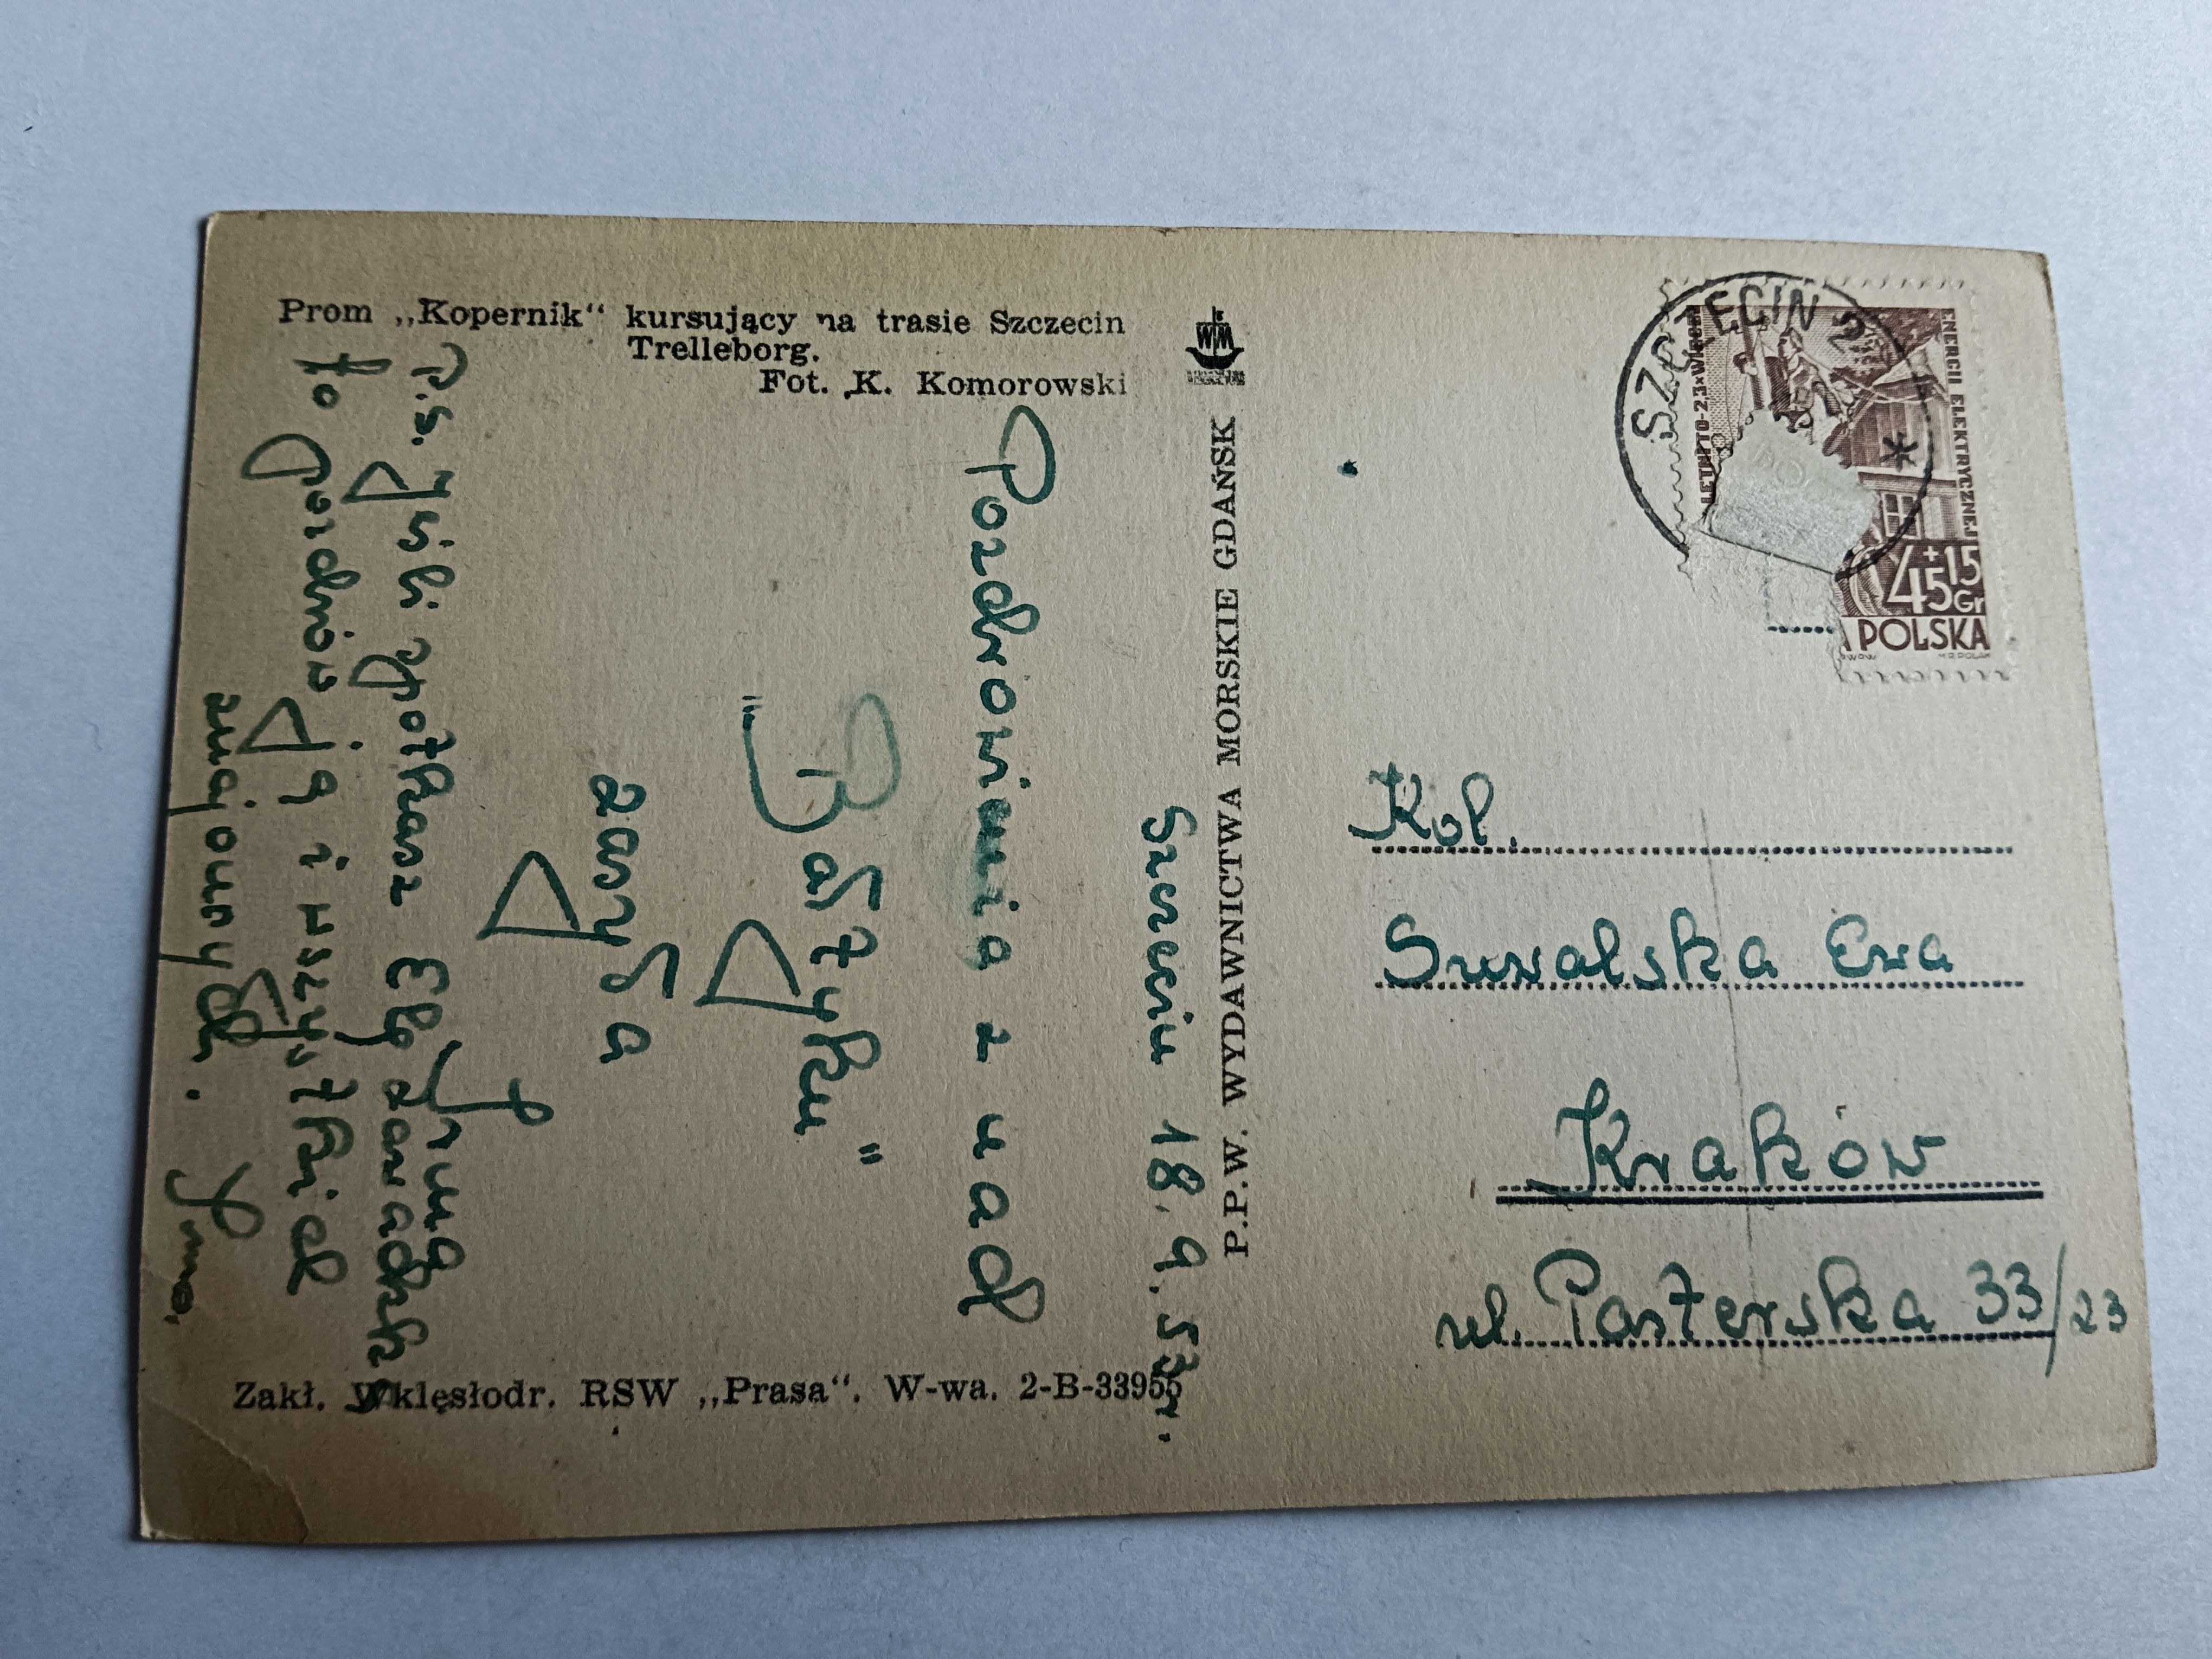 Prom „Kopernik“ kursujący na trasie Szczecin
Trelleborg.
Fot. K. Komorowski
WM
P.P.W. WYDAWNICTWA MORSKIE GDAŃSK
Szczecin 18.9.53r.
Pozdrowienia z nad
"Bałtyku"
zasyła
P.S. Jeśli spotkasz Elę
to pozdrów ją i wszystkich
znajomych.
Zakł. Wklęsłodr. RSW „Prasa“. W-wa. 2-B-33955
SZCZECIN 2
ENERGII ELEKTRYCZNEJ
45+15
Gr
POLSKA
Kol.
Suwalska Ewa
Kraków
ul. Pasterska 33/23